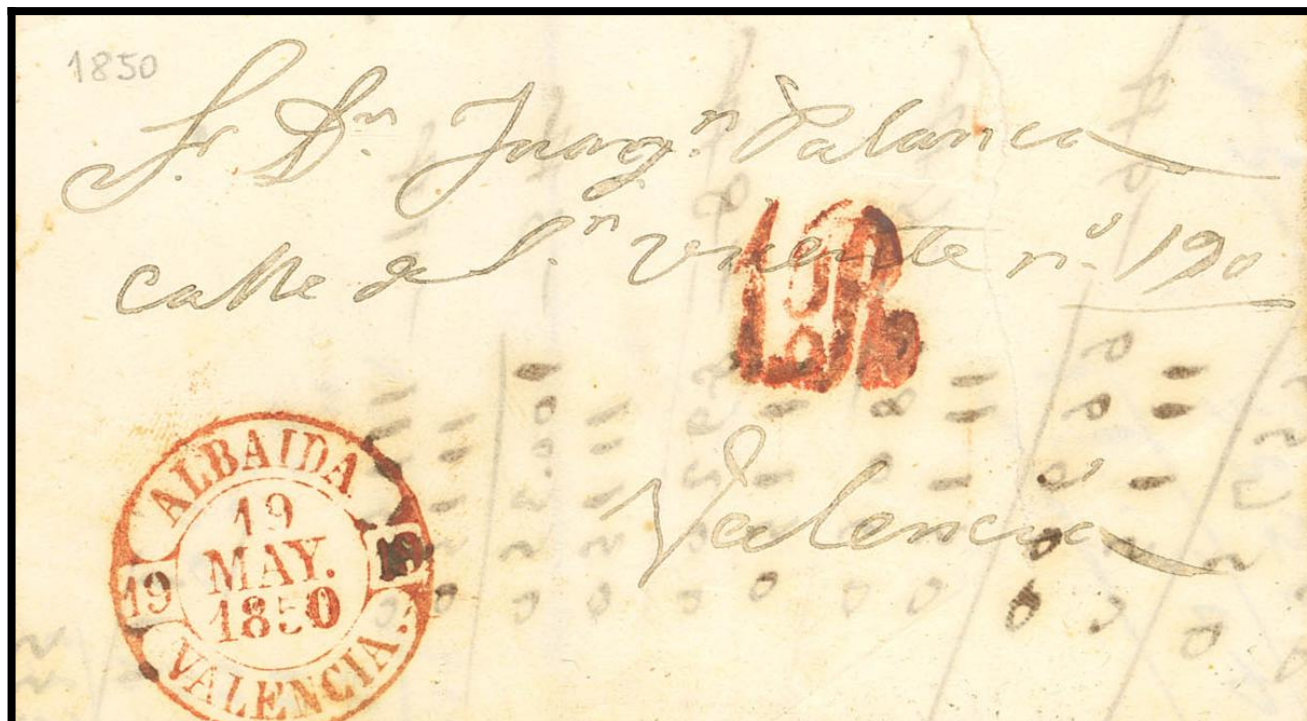 1850
Sr. Dn. Juaqn. Palanca
calle de Sn. Vicente nº. 190
Valencia
ALBAIDA
19
MAY.
1850
19
19
VALENCIA.